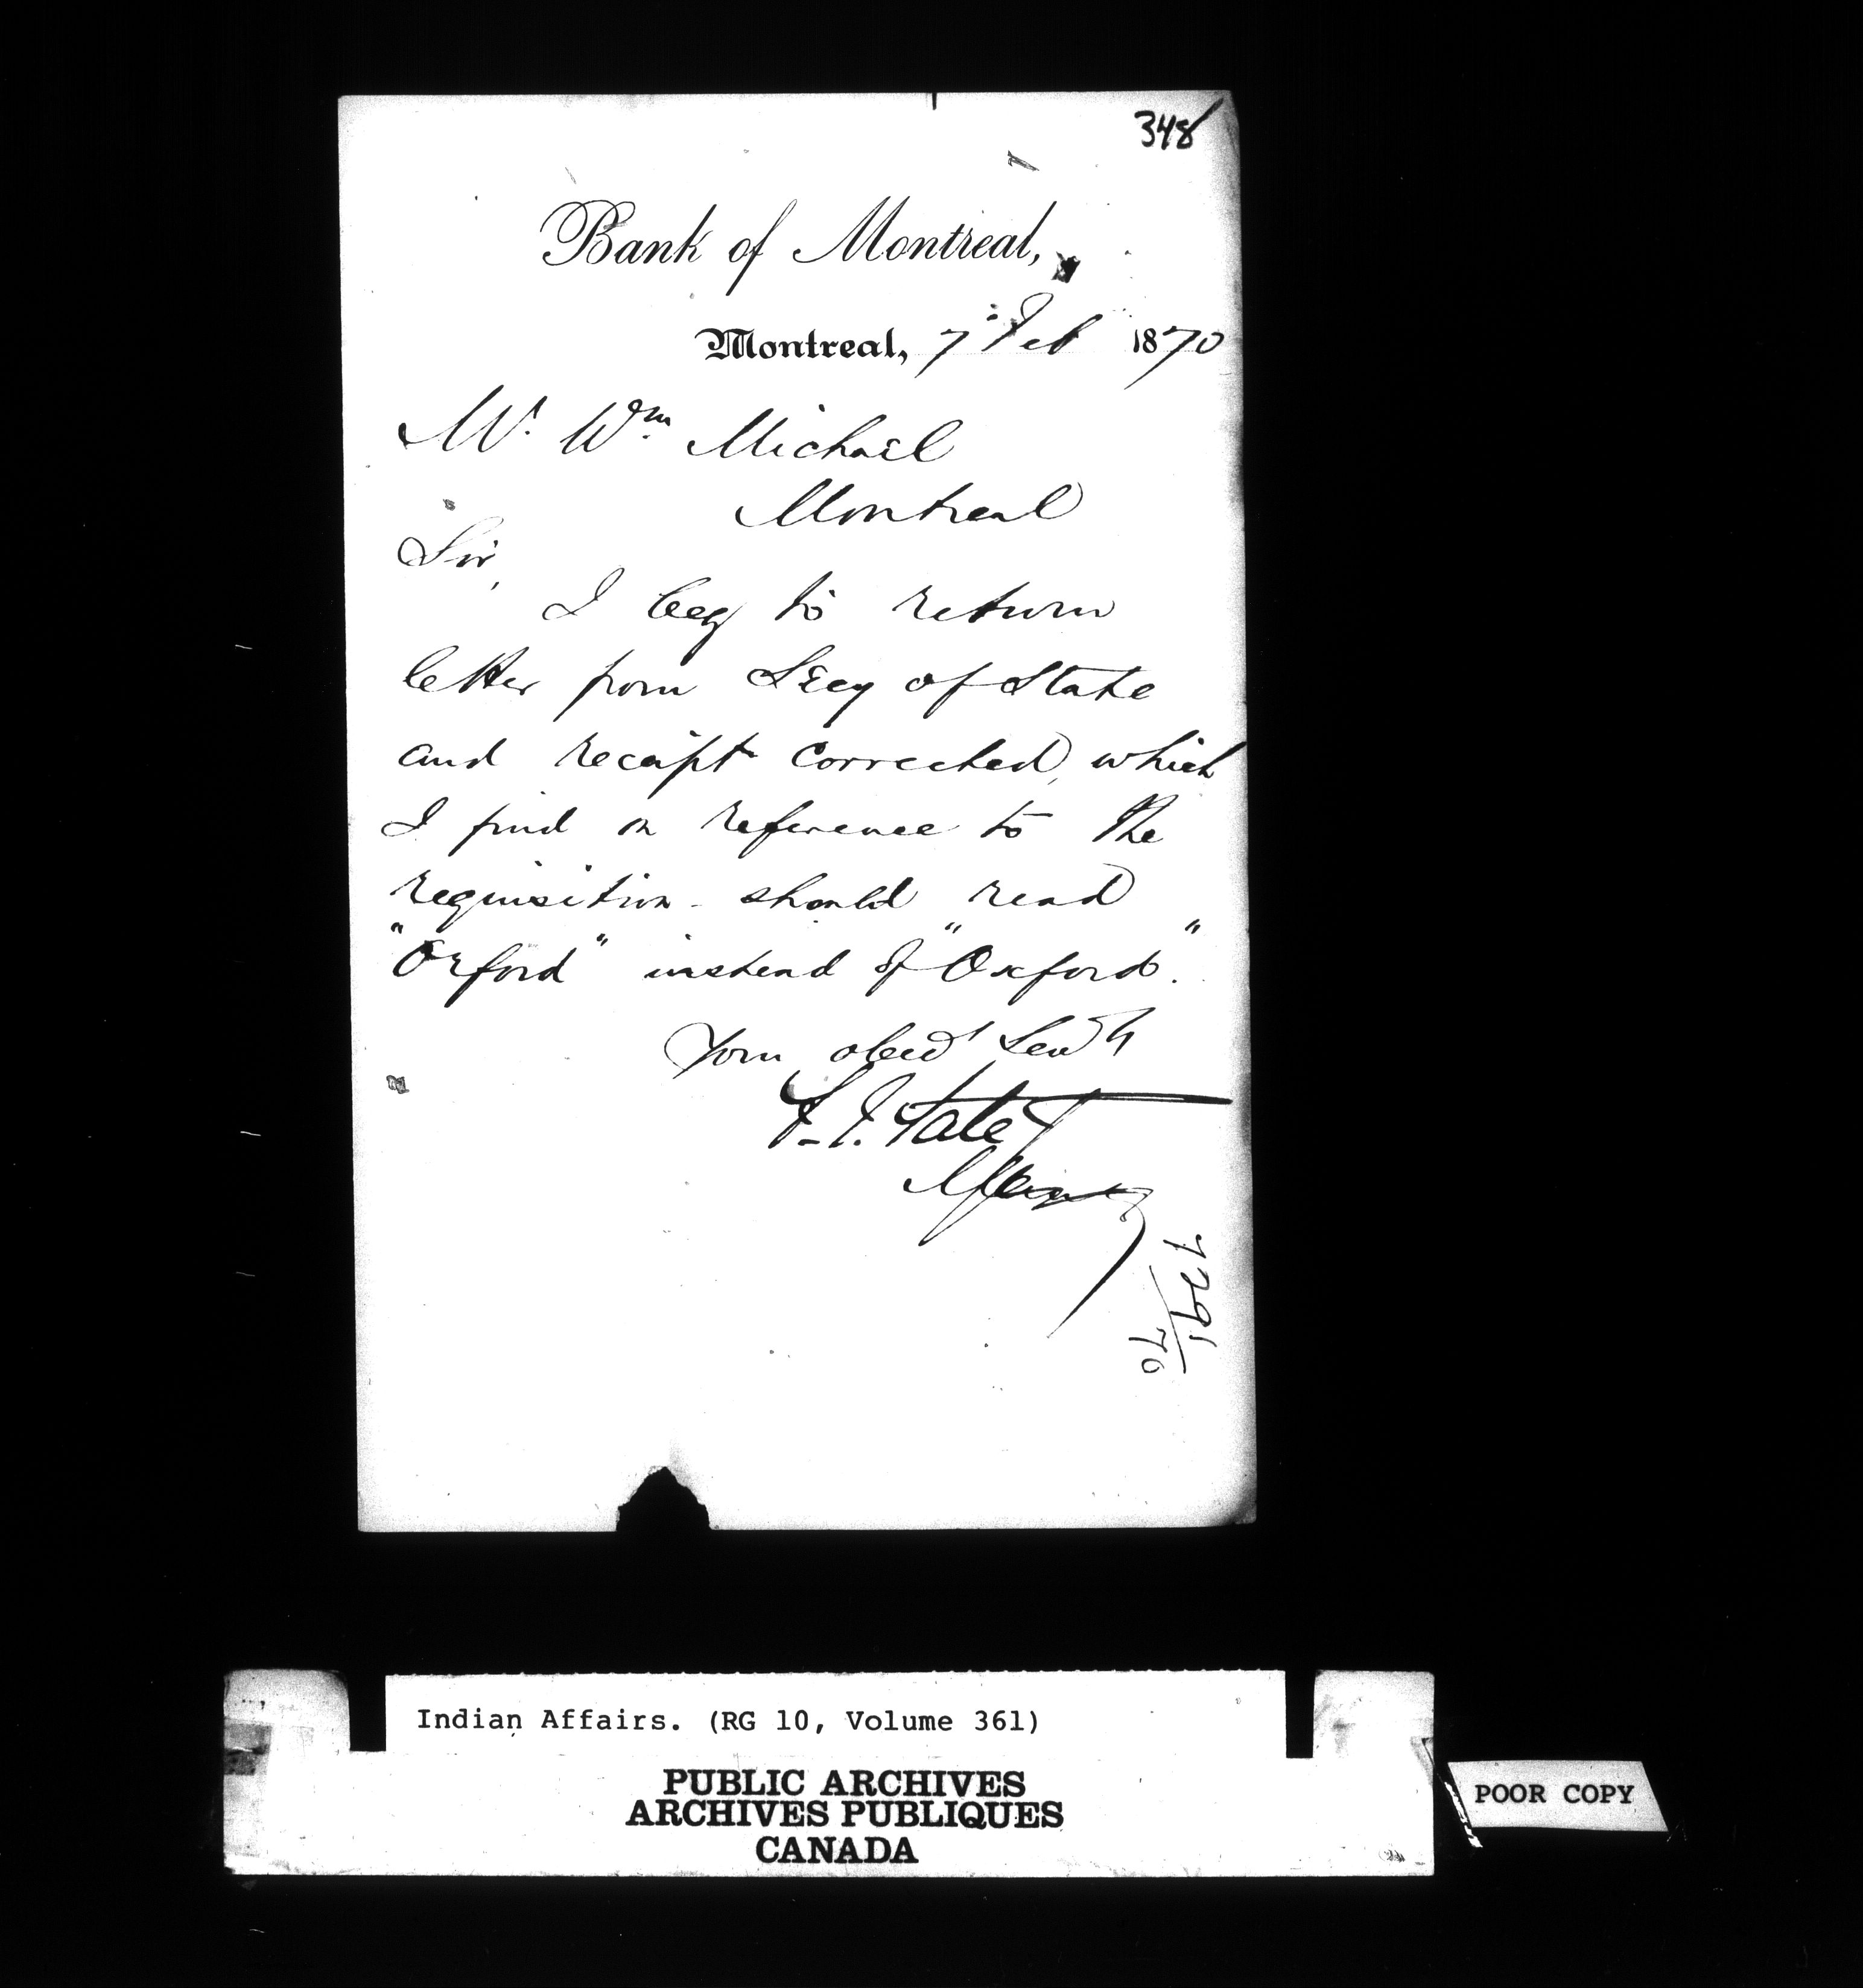 348
Bank of Montreal,
Montreal, 7 Feb 1870
Mr. Wm Michael
Montreal
Sir,
I beg to return
letter from Secy of State
and receipt corrected, which
I find on reference to the
requisition - should read
"Orford" instead of "Oxford."
Your obedt Servt
7291/70
Indian Affairs. (RG 10, Volume 361)
PUBLIC ARCHIVES
ARCHIVES PUBLIQUES
CANADA
POOR COPY